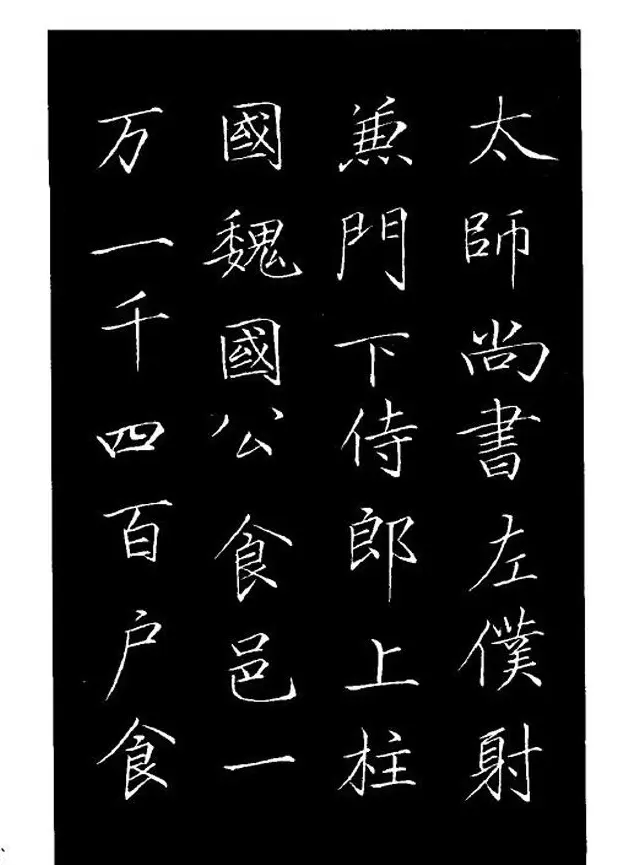 太師尚書左僕射
兼門下侍郎上柱
國魏國公食邑一
万一千四百户食